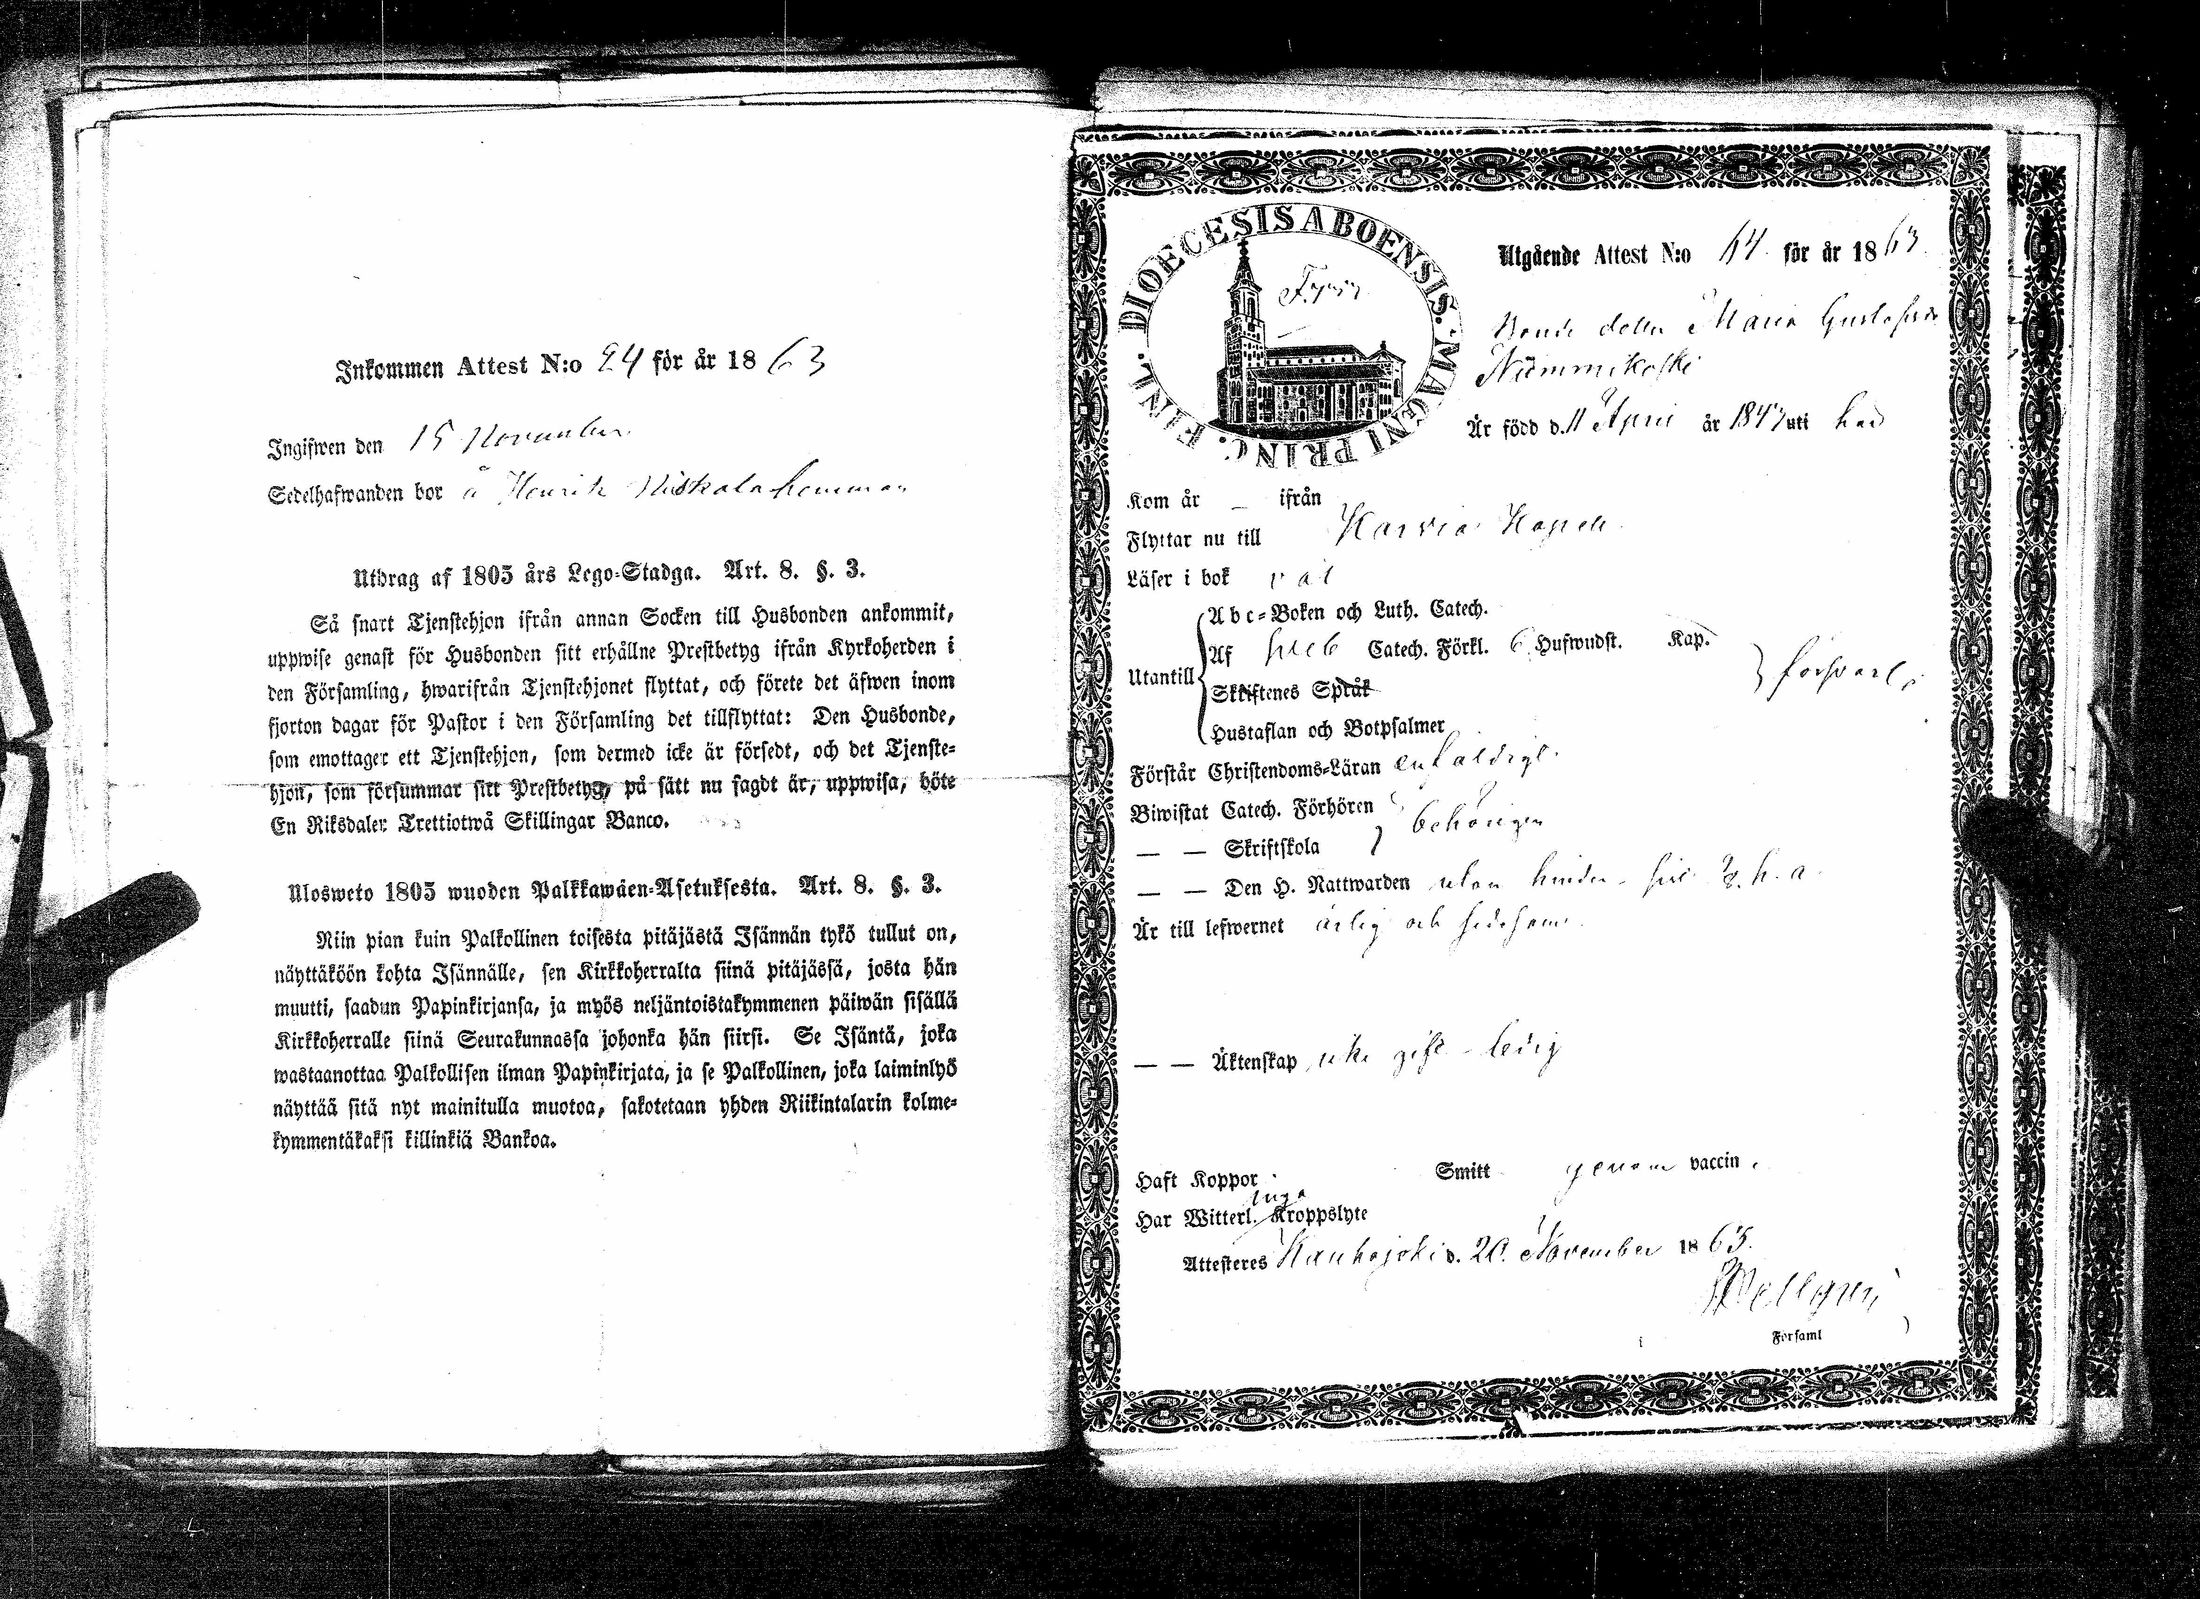 Inkommen Attest N:o 24 för år 1863
Ingifwen den 15 November
Sedelhafwanden bor å Henrik Niskala hemman
Utdrag af 1805 års Lego-Stadga. Art. 8. §. 3.
Så snart Tjenstehjon ifrån annan Socken till Husbonden ankommit,
uppwise genast för Husbonden sitt erhållne Prestbetyg ifrån Kyrkoherden i
den Församling, hwarifrån Tjenstehjonet flyttat, och förete det äfwen inom
fjorton dagar för Pastor i den Församling det tillflyttat: Den Husbonde,
som emottager ett Tjenstehjon, som dermed icke är försedt, och det Tjenste-
hjon, som försummar sitt Prestbetyg, på sätt nu sagdt är, uppwisa, böte
En Riksdaler Trettiotwå Skillingar Banco.
Ulosweto 1805 wuoden Palkkawäen-Asetuksesta. Art. 8. §. 3.
Niin pian kuin Palkollinen toisesta pitäjästä Isännän tykö tullut on,
näyttäköön kohta Isännälle, sen Kirkkoherralta siinä pitäjässä, josta hän
muutti, saadun Papinkirjansa, ja myös neljäntoistakymmenen päiwän sisällä
Kirkkoherralle siinä Seurakunnassa johonka hän siirsi. Se Isäntä, joka
wastaanottaa Palkollisen ilman Papinkirjata, ja se Palkollinen, joka laiminlyö
näyttää sitä nyt mainitulla muotoa, sakotetaan yhden Riikintalarin kolme-
kymmentäkaksi killinkiä Bankoa.
DIOECESIS ABOENSIS. MAGNI PRINC. FINL.
Utgående Attest N:o 64 för år 1863
Bonde dotter Maria Gustafsdr
Nummikoski
Är född d. 11 April år 1843 uti här
Kom år – ifrån
Flyttar nu till Karvia Kapell
Läser i bok väl
Abc-Boken och Luth. Catech.
Utantill Af Sveb Catech. Förkl. 6 Hufwudst. Kap. försvarl.
Skriftenes Språk
Hustaflan och Botpsalmer
Förstår Christendoms-Läran enfaldigt
Biwistat Catech. Förhören
— — Skriftskola behörigen
— — Den H. Nattwarden utan hinder h. a.
Är till lefwernet ärlig och sedesam
— — Äktenskap icke gift – ledig
Haft Koppor Smitt genom vaccin.
Har Witterl. inga Kroppslyte
Attesteres Kauhajoki d. 20 November 1863.
Församl